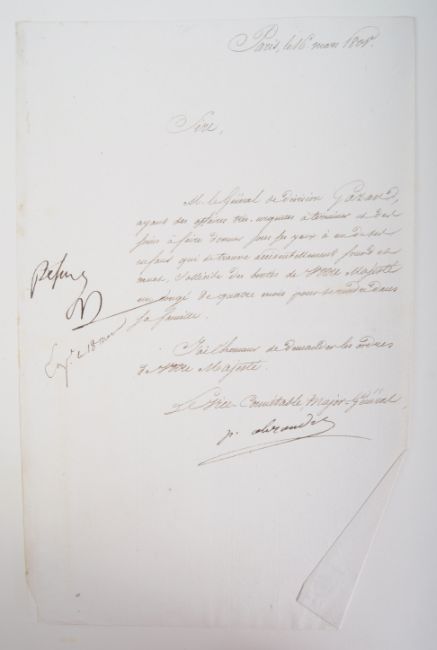 Paris, le 16 mars 1808.
Sire,
M. le Général de division Gazan,
ayant des affaires très urgentes à terminer et des
soins à faire donner sous ses yeux à un de ses
enfans qui se trouve accidentellement sourd et
muet, sollicite des bontés de Votre Majesté
un congé de quatre mois pour se rendre dans
sa famille.
J'ai l'honneur de demander les ordres
de Votre Majesté.
Le Vice-Connétable, Major-Général,
refusé
N